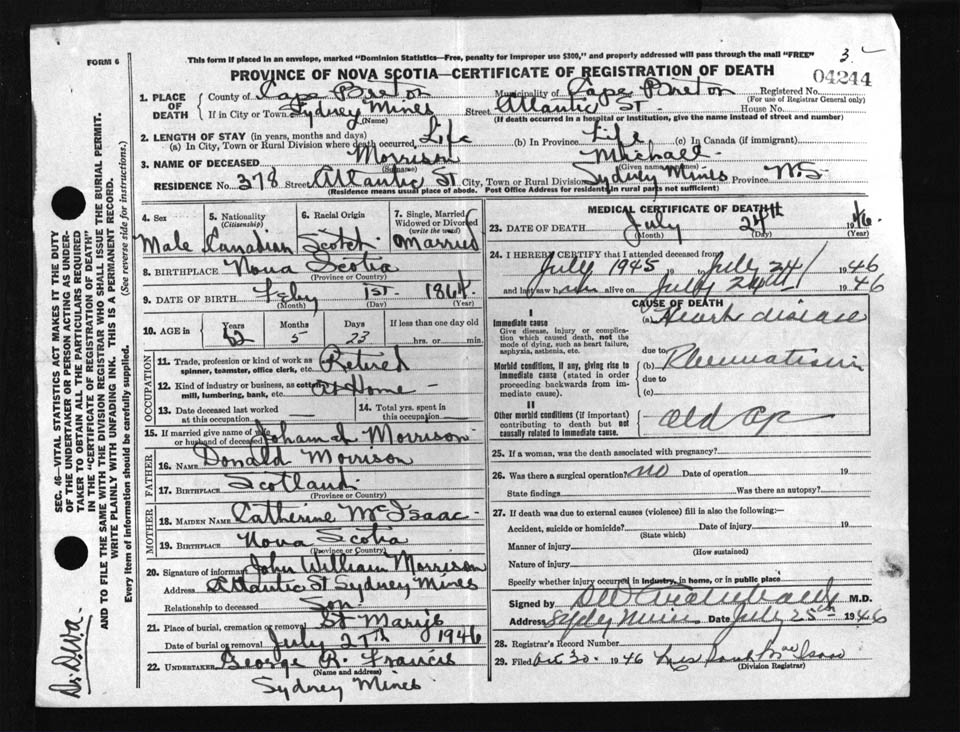 This form if placed in an envelope, marked "Dominion Statistics—Free, penalty for improper use $300," and properly addressed will pass through the mail "FREE"
3
FORM 6
PROVINCE OF NOVA SCOTIA—CERTIFICATE OF REGISTRATION OF DEATH
04244
1. PLACE OF DEATH
County of Cape Breton Municipality of Cape Breton Registered No.
(For use of Registrar General only)
If in City or Town Sydney Mines Street Atlantic St. House No.
(Name) (If death occurred in a hospital or institution, give the name instead of street and number)
2. LENGTH OF STAY (in years, months and days)
(a) In City, Town or Rural Division where death occurred, Life (b) In Province Life (c) In Canada (if immigrant)
3. NAME OF DECEASED Morrison Michael
(Surname) (Given name or names)
RESIDENCE No. 378 Street Atlantic St City, Town or Rural Division Sydney Mines Province N.S.
(Residence means usual place of abode. Post Office Address for residents in rural parts not sufficient)
4. Sex
Male
5. Nationality
(Citizenship)
Canadian
6. Racial Origin
Scotch
7. Single, Married, Widowed or Divorced
(write the word)
Married
8. BIRTHPLACE Nova Scotia
(Province or Country)
9. DATE OF BIRTH Feby 1st. 1864.
(Month) (Day) (Year)
10. AGE in Years Months Days If less than one day old
82 5 23 hrs. or min.
OCCUPATION
11. Trade, profession or kind of work as spinner, teamster, office clerk, etc. Retired
12. Kind of industry or business, as cotton mill, lumbering, bank, etc. at Home
13. Date deceased last worked at this occupation
14. Total yrs. spent in this occupation
15. If married give name of wife or husband of deceased Morrison
FATHER
16. NAME Donald Morrison
17. BIRTHPLACE Scotland
(Province or Country)
MOTHER
18. MAIDEN NAME Catherine McIsaac
19. BIRTHPLACE Nova Scotia
(Province or Country)
20. Signature of informant John William Morrison
Address Atlantic St Sydney Mines
Relationship to deceased Son
21. Place of burial, cremation or removal St Marys
Date of burial or removal July 27th 1946
22. UNDERTAKER George R. Francis
(Name and address)
Sydney Mines
MEDICAL CERTIFICATE OF DEATH
23. DATE OF DEATH July 24th 1946.
(Month) (Day) (Year)
24. I HEREBY CERTIFY that I attended deceased from
July 1945 19 to July 24 1946
and last saw him alive on July 24th 1946
CAUSE OF DEATH
I
Immediate cause
Give disease, injury or complication which caused death, not the mode of dying, such as heart failure, asphyxia, asthenia, etc.
(a) Heart disease
due to
Morbid conditions, if any, giving rise to immediate cause (stated in order proceeding backwards from immediate cause).
(b) Rheumatism
due to
(c)
II
Other morbid conditions (if important) contributing to death but not causally related to immediate cause.
Old age
25. If a woman, was the death associated with pregnancy?
26. Was there a surgical operation? no Date of operation 19
State findings Was there an autopsy?
27. If death was due to external causes (violence) fill in also the following:—
Accident, suicide or homicide? Date of injury 19
(State which)
Manner of injury
(How sustained)
Nature of injury
Specify whether injury occurred in industry, in home, or in public place
Signed by M.D.
Address Sydney Mines Date July 25th 1946
28. Registrar's Record Number
29. Filed Oct 30. 1946 MacIsaac
(Division Registrar)
SEC. 46—VITAL STATISTICS ACT MAKES IT THE DUTY
OF THE UNDERTAKER OR PERSON ACTING AS UNDERTAKER
TO OBTAIN ALL THE PARTICULARS REQUIRED
IN THE "CERTIFICATE OF REGISTRATION OF DEATH"
AND TO FILE THE SAME WITH THE DIVISION REGISTRAR WHO SHALL ISSUE THE BURIAL PERMIT.
WRITE PLAINLY WITH UNFADING INK. THIS IS A PERMANENT RECORD.
Every item of information should be carefully supplied. (See reverse side for instructions.)